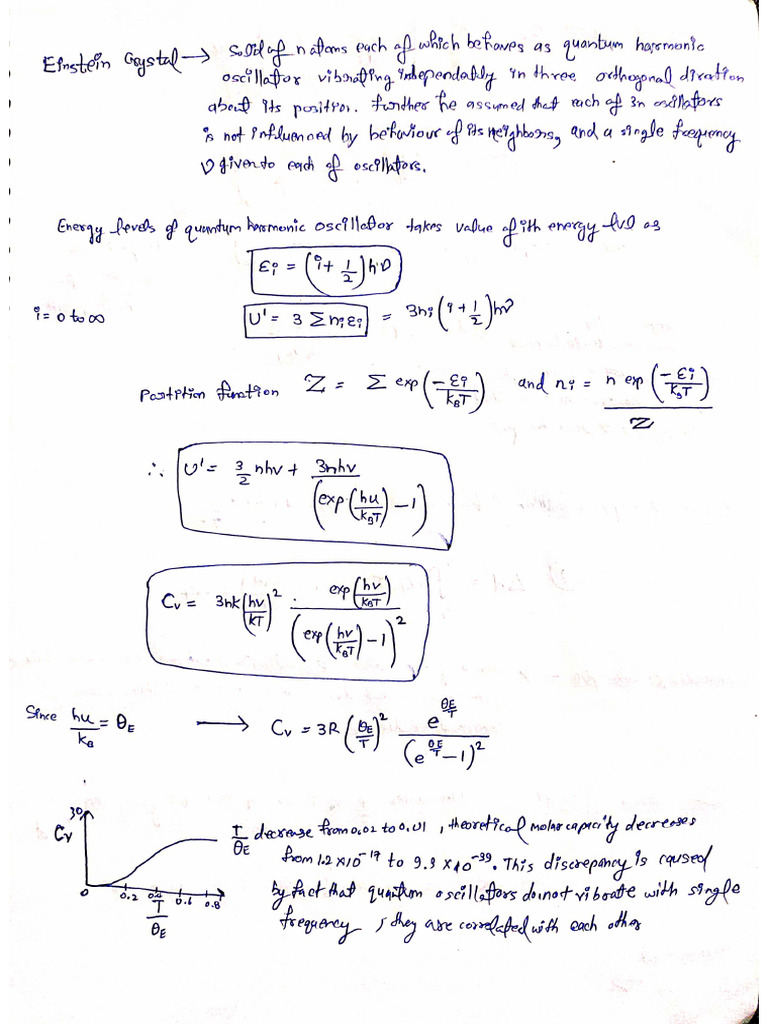 Einstein Crystal → Solid of n atoms each of which behaves as quantum harmonic
oscillator vibrating independably in three orthogonal diration
about its position. Further he assumed that each of 3n oscillators
is not influenced by behaviour of its neighbours, and a single frequency
ν given to each of oscillators.
Energy levels of quantum harmonic oscillator takes value of ith energy lvl as
εi = (i + 1/2) hν
i = 0 to ∞
U' = 3 Σ ni εi = 3ni (i + 1/2) hν
Partition function Z = Σ exp (-εi / kBT) and ni = n exp (-εi / kBT) / Z
∴ U' = 3/2 nhν + 3nhν / (exp (hu / kBT) - 1)
Cv = 3nk (hν / kT)² · exp (hν / kBT) / (exp (hν / kBT) - 1)²
Since hu / kB = θE → Cv = 3R (θE / T)² e^(θE/T) / (e^(θE/T) - 1)²
30
Cv
0 0.2 0.4 0.6 0.8
T / θE
T / θE decrease from 0.02 to 0.01, theoretical molar capacity decreases
from 1.2 × 10⁻¹⁷ to 9.3 × 10⁻³⁹. This discrepancy is caused
by fact that quantum oscillators do not vibrate with single
frequency, they are correlated with each other